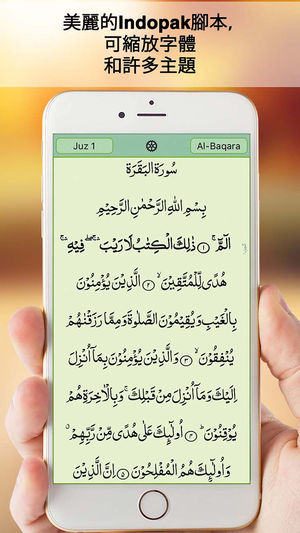 美麗的Indopak腳本,
可縮放字體
和許多主題
Juz 1
Al-Baqara
سُورَةُ الْبَقَرَة
بِسْمِ اللهِ الرَّحْمٰنِ الرَّحِيْمِ
الٓمّٓ ۚ ﴿۱﴾ ذٰلِكَ الْكِتٰبُ لَا رَيْبَ ۛۖ فِيْهِ ۛۚ
هُدًى لِّلْمُتَّقِيْنَ ۙ ﴿۲﴾ الَّذِيْنَ يُؤْمِنُوْنَ
بِالْغَيْبِ وَيُقِيْمُوْنَ الصَّلٰوةَ وَمِمَّا رَزَقْنٰهُمْ
يُنْفِقُوْنَ ۙ ﴿۳﴾ وَالَّذِيْنَ يُؤْمِنُوْنَ بِمَاۤ اُنْزِلَ
اِلَيْكَ وَمَاۤ اُنْزِلَ مِنْ قَبْلِكَ ۚ وَبِالْاٰخِرَةِ هُمْ
يُوْقِنُوْنَ ؕ ﴿۴﴾ اُولٰٓئِكَ عَلٰى هُدًى مِّنْ رَّبِّهِمْ ۙ
وَاُولٰٓئِكَ هُمُ الْمُفْلِحُوْنَ ﴿۵﴾ اِنَّ الَّذِيْنَ